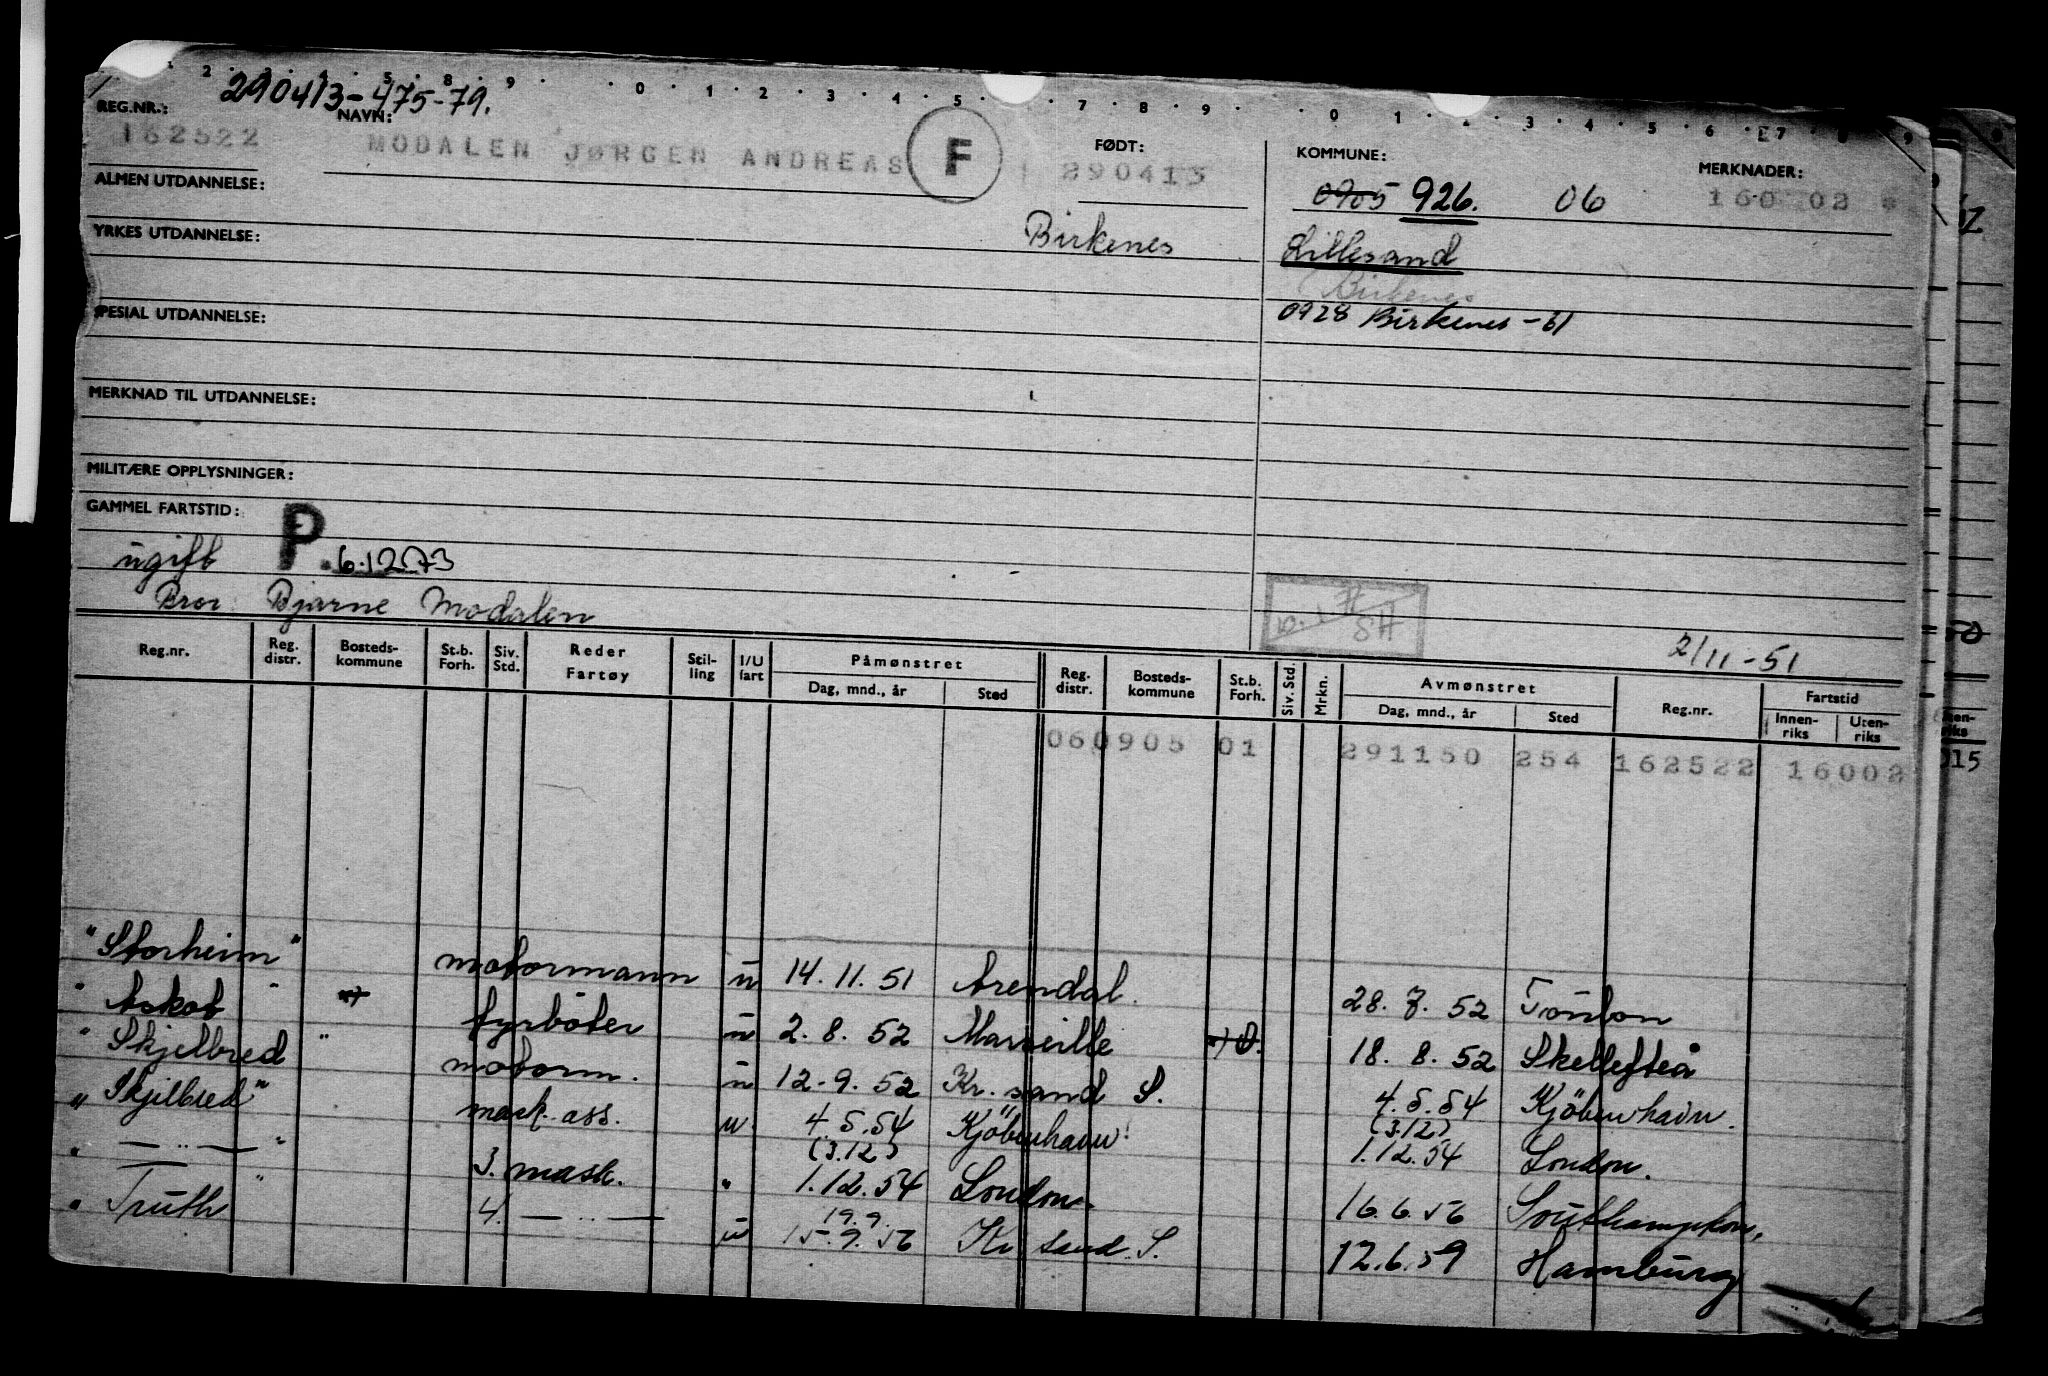 290413-475-79.
REG.NR.: NAVN: FØDT: KOMMUNE: MERKNADER:
162522 MODALEN JØRGEN ANDREAS F 290413 0905 926. 06 160 02 *
ALMEN UTDANNELSE:
Birkenes Lillesand
YRKES UTDANNELSE:
Birkenes
0928 Birkenes -61
SPESIAL UTDANNELSE:
MERKNAD TIL UTDANNELSE:
MILITÆRE OPPLYSNINGER:
GAMMEL FARTSTID:
ugift P. 6.1273
Bror: Bjarne Modalen
2/11-51
Reg.nr. Reg. distr. Bosteds-kommune St.b. Forh. Siv. Std. Reder Fartøy Stil-ling I/U fart Påmønstret Dag, mnd., år Sted Reg. distr. Bosteds-kommune St.b. Forh. Siv. Std. Mrkn. Avmønstret Dag, mnd., år Sted Reg.nr. Fartstid Innen-riks Uten-riks
060905 01 291150 254 162522 16002
"Storheim" motormann u 14.11.51 Arendal. 28.7.52 Toulon
" Askot " fyrbøter u 2.8.52 Marseille 18.8.52 Skellefteå
" Skjelbred " motorm. u 12.9.52 Kr.sand S. 4.5.54 Kjöbenhavn.
" Skjelbred" mask. ass. u 4 5.54 Kjöbenhavn (3.12) 1.12.54 London.
" — " — " 3. mask. " (3.12) 1.12.54 London. 16.6.56 Southampton,
" Truth " 4. — " — u 19.9. 15.9.56 Kr sand. S. 12.6.59 Hamburg